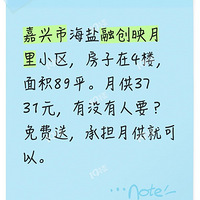 嘉兴市海盐融创映月
里小区，房子在4楼，
面积89平。月供37
31元，有没有人要？
免费送，承担月供就可
以。
...note!~